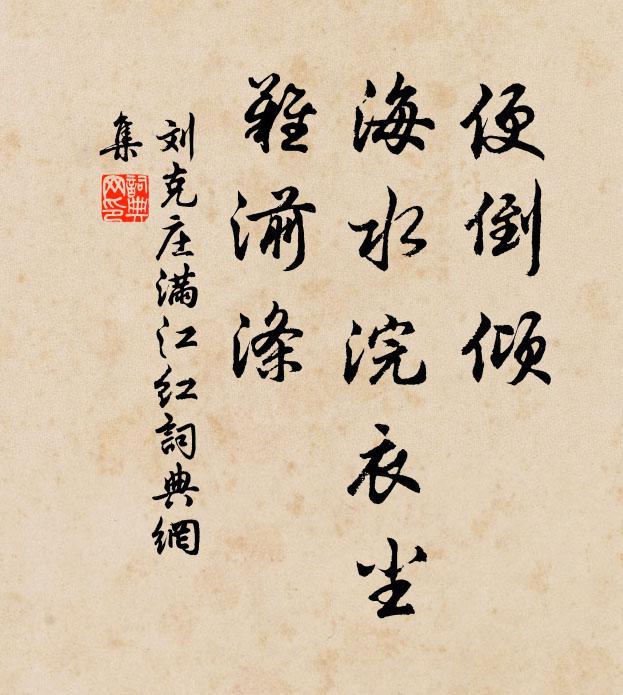 便倒倾
海水浣衣尘
難湔涤
刘克庄满江红詞典網
集
詞典
网印